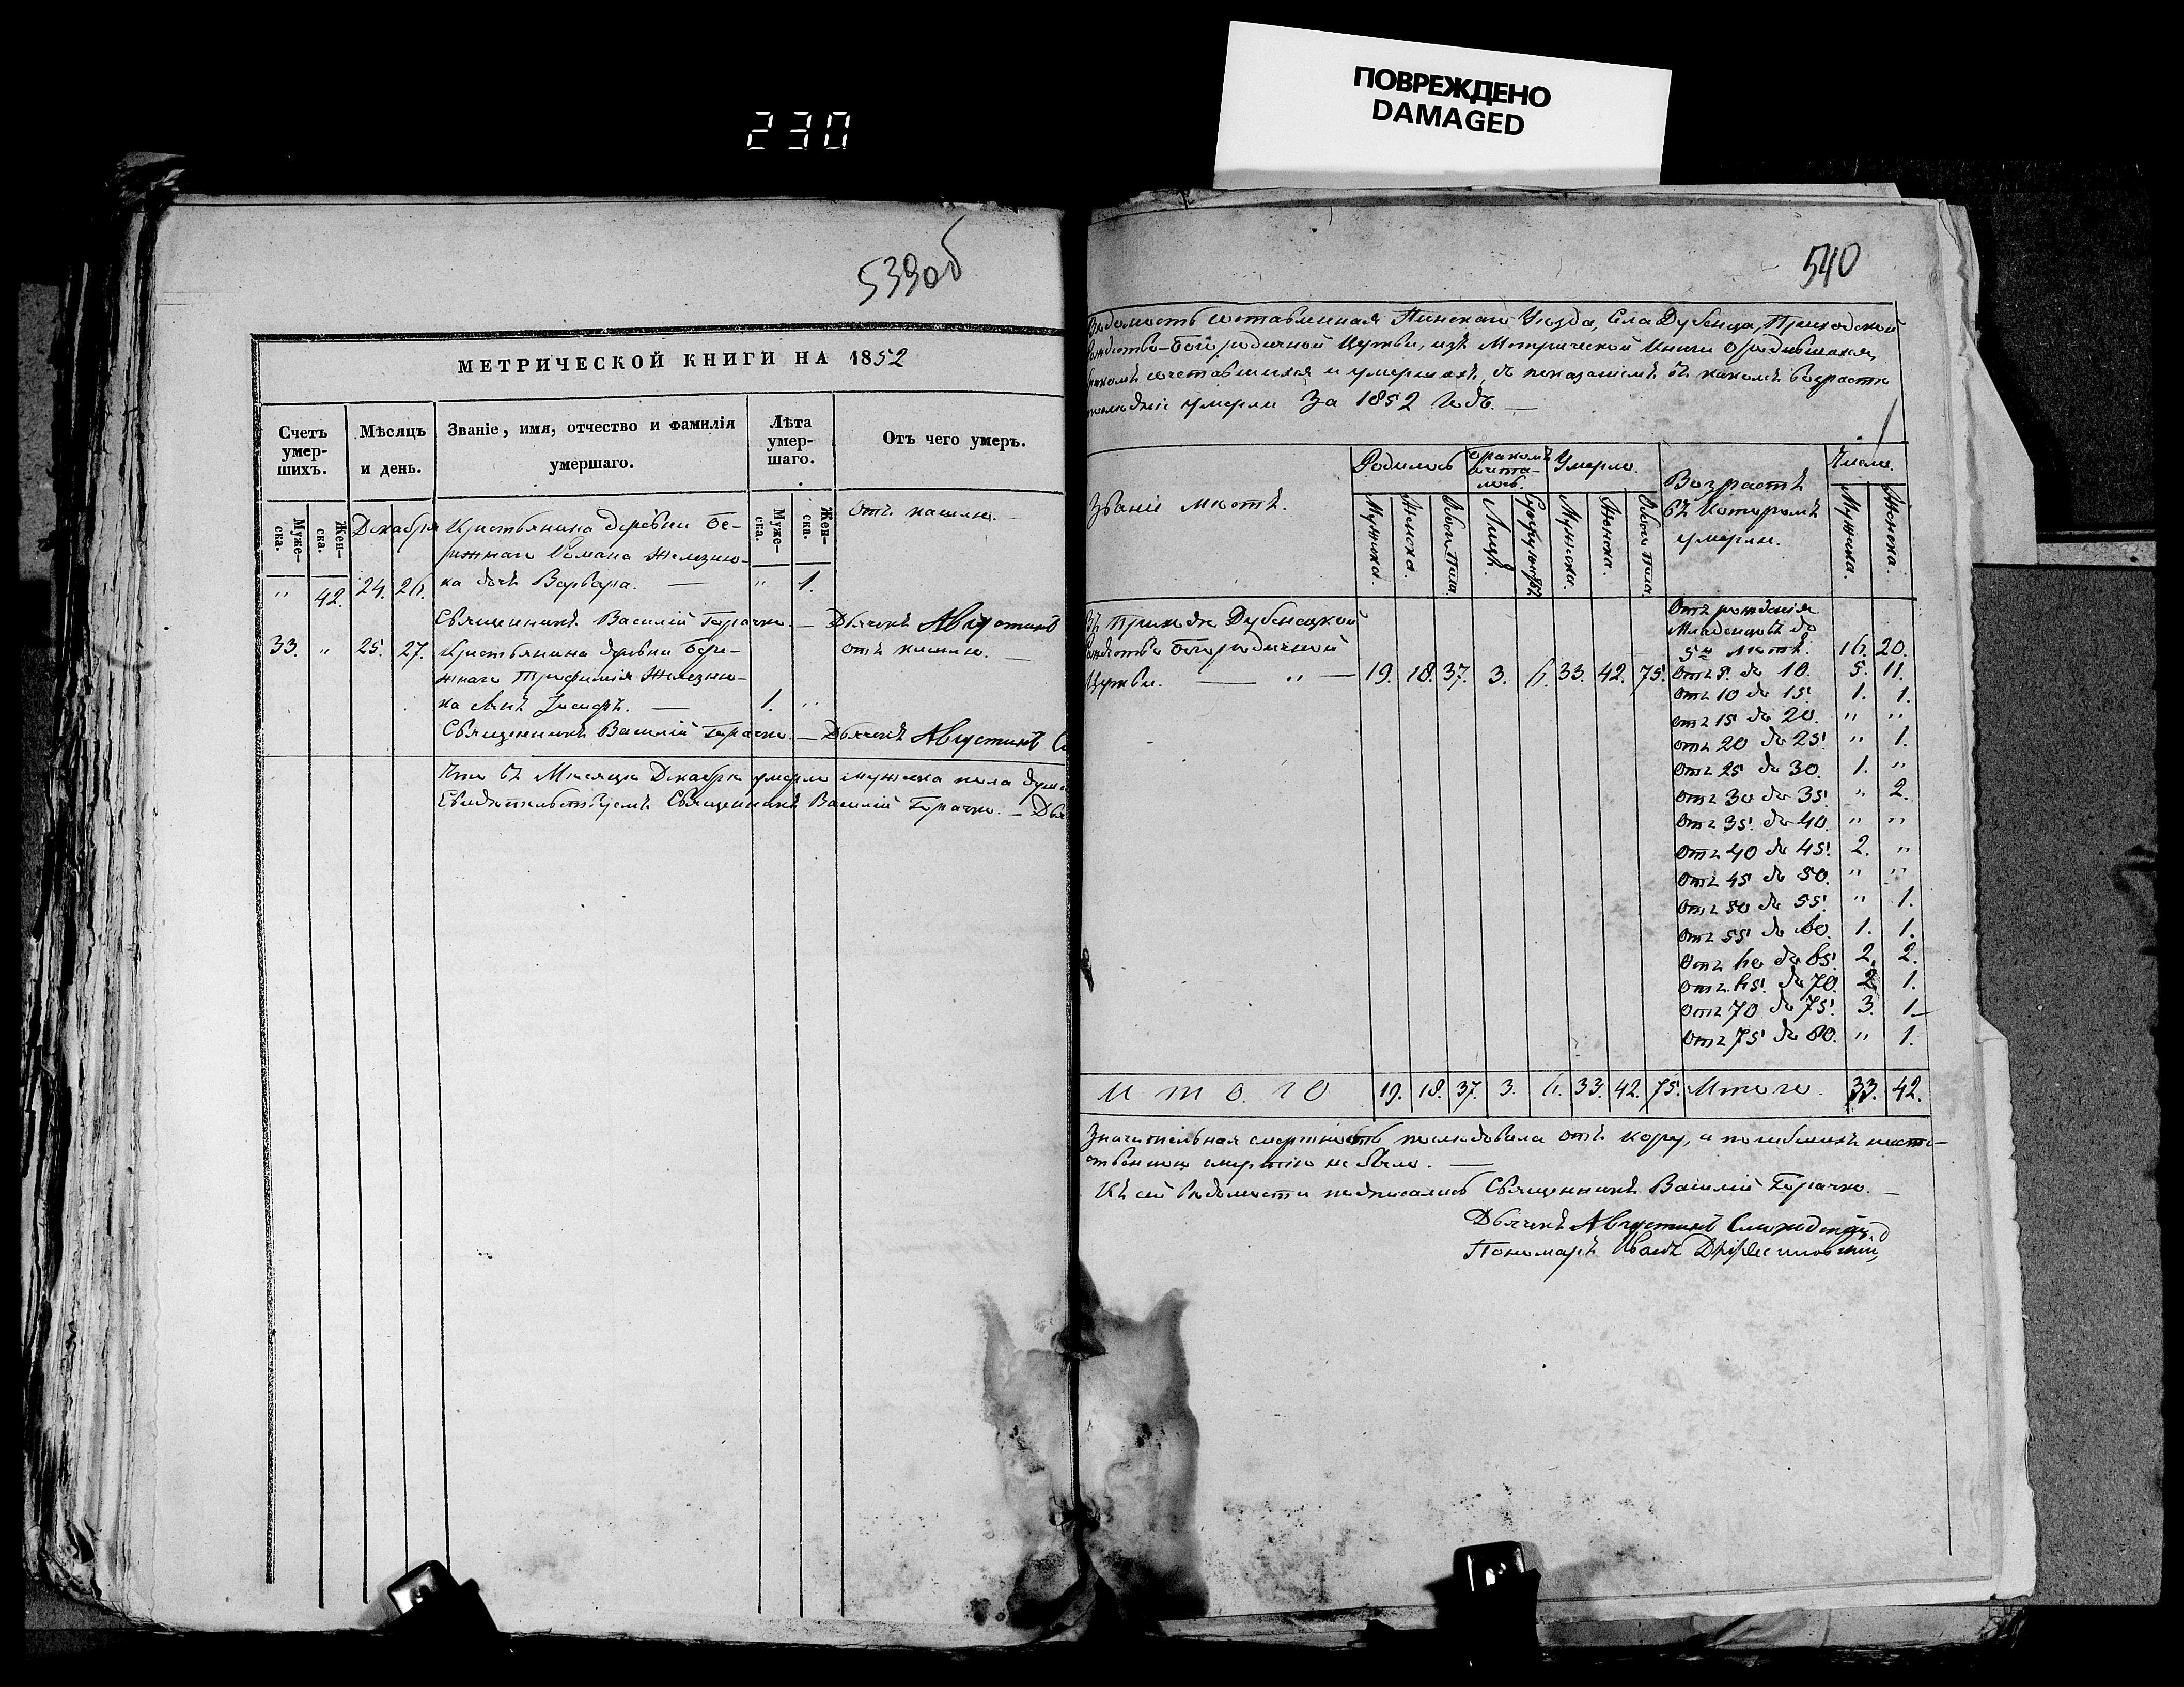 ПОВРЕЖДЕНО
DAMAGED
230
539об
МЕТРИЧЕСКОЙ КНИГИ НА 1852
Счетъ умер-шихъ.
Мѣсяцъ и день.
Званіе, имя, отчество и фамилія умершаго.
Лѣта умер-шаго.
Отъ чего умеръ.
Муже-ска.
Жен-ска.
Муже-ска.
Жен-ска.
Декабрь Крестьянина деревни Бе- Отъ кашлю. —
режнаго Романа Железню-
" 42. 24. 26. ка дочь Варвара. — " 1.
Священникъ Василій Горачко. — Дьячекъ Августинъ
33. " 25. 27. Крестьянина деревни Бере- отъ кашлю. —
жнаго Трофимія Железню-
ка сынъ Іосифъ. — 1. "
Священникъ Василій Горачко. — Дьячекъ Августинъ
Что въ Месяце Декабре умерло мужеска пола душъ
Свидетельствуемъ Священникъ Василій Горачко. —
540
Ведомость составленная Пинскаго Уезда, Села Дубенца, Приходской
Рождество-Богородичной Церкви, изъ Метрической Книги о родившихся
бракомъ сочетавшихся и умершихъ, съ показаніемъ въ какомъ возрасте
умерли За 1852 Годъ. —
Званіе местъ.
Родилось
бракомъ сочета-лось.
Умерло.
Возрастъ въ Которомъ умерли.
Число.
Мужска.
Женска.
Обоего Пола.
Лицъ.
Мужска.
Женска.
Обоего Пола.
Мужска.
Женска.
Въ Приходе Дубенецкой
Рождество Богородичной
Церкви. — " — 19. 18. 37. 3. 6. 33. 42. 75.
Отъ рожденія
Младенцовъ до
5ти Летъ. 16. 20.
Отъ 5. до 10. 5. 11.
Отъ 10 до 15. 1. 1.
Отъ 15 до 20. " "
Отъ 20 до 25. " 1.
Отъ 25 до 30. 1. "
Отъ 30 до 35. " 2.
Отъ 35. до 40. " "
Отъ 40 до 45. 2. "
Отъ 45 до 50. " "
Отъ 50 до 55. " 1.
Отъ 55 до 60. 1. 1.
Отъ 60 до 65. 2. 2.
Отъ 65. до 70. 2. 1.
Отъ 70 до 75. 3. 1.
Отъ 75 до 80. " 1.
Итого 19. 18. 37. 3. 6. 33. 42. 75. Итого. 33. 42.
Значительная смертность последовала отъ кору, а погибшихъ неесте-
ственною смертію не было. —
Къ сей Ведомости подписались Священникъ Василій Горачко. —
Дьячекъ Августинъ
Пономарь Иванъ